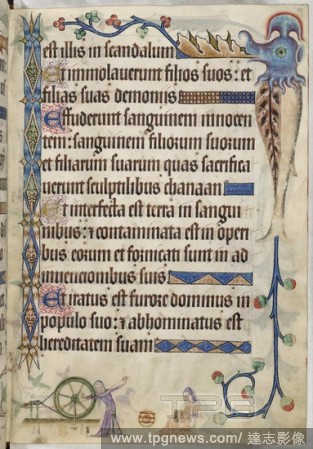 est illis in scandalum
Et immolauerunt filios suos: et
filias suas demoniis
Effuderunt sanguinem innocen
tem: sanguinem filiorum suorum
et filiarum suarum quas sacrifica
uerunt sculptilibus chanaan
Et interfecta est terra in sangui
nibus: et contaminata est in operi
bus eorum et fornicati sunt in ad
inuencionibus suis
Et iratus est furore dominus in
populo suo: et abhominatus est
hereditatem suam
TPG
www.tpgnews.com / 達志影像